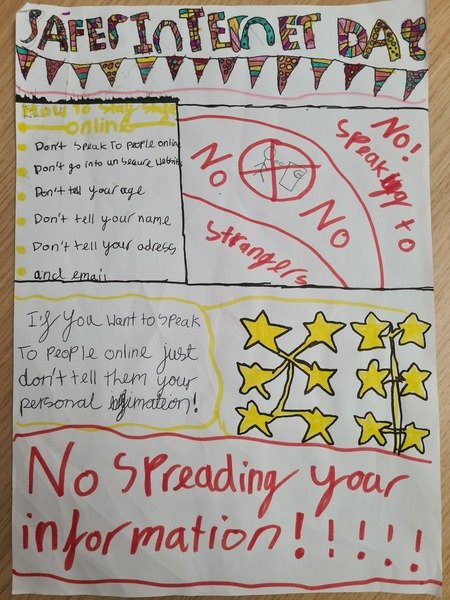 SAFER INTERNET DAY
How to stay safe
online
Don't speak To people online
Don't go into un secure website
Don't tell your age
Don't tell your name
Don't tell your adress
and email
No No
No! Speaking to
strangers
If you want to speak
To people online just
don't tell them your
personal
No spreading your
information!!!!!